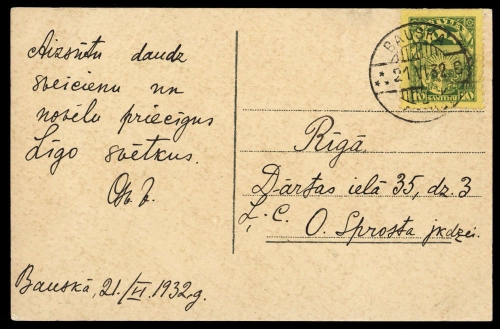 Aizsūtu daudz
sveicienu un
novēlu priecīgus
Līgo svētkus.
Bauskā, 21./VI. 1932.g.
BAUSKA
21.VI.32
LATVIJA
Rīgā.
Dārtas ielā 35, dz. 3
Ļ. C. O. Sprosta jkdzei.